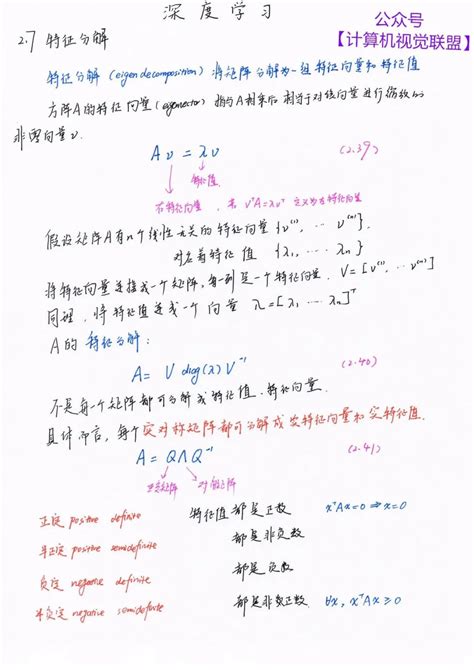 深度学习
公众号
【计算机视觉联盟】
2.7 特征分解
特征分解（eigen decomposition）将矩阵分解为一组特征向量和特征值
方阵A的特征向量（eigenvector）指与A相乘后相当于对该向量进行缩放的
非零向量v.
Av = λv (2.39)
特征值
右特征向量，若 vᵀA=λvᵀ 定义为左特征向量
假设矩阵A有n个线性无关的特征向量 {v⁽¹⁾, ... v⁽ⁿ⁾}.
对应着特征值 {λ₁, ... λn}
将特征向量连接成一个矩阵，每一列是一个特征向量. V=[v⁽¹⁾, ... v⁽ⁿ⁾]
同理，将特征值连成一个向量 λ=[λ₁, ... λn]ᵀ
A的特征分解：
A= V diag(λ) V⁻¹ (2.40)
不是每一个矩阵都可分解成特征值.特征向量
具体而言，每个实对称矩阵都可分解成实特征向量和实特征值.
A = QΛQ⁻¹ (2.41)
正交矩阵 对角矩阵
正定 positive definite 特征值都是正数 xᵀAx=0 ⇒ x=0
半正定 positive semidefinite 都是非负数
负定 negative definite 都是负数
半负定 negative semidefinite 都是非正数. ∀x, xᵀAx≥0